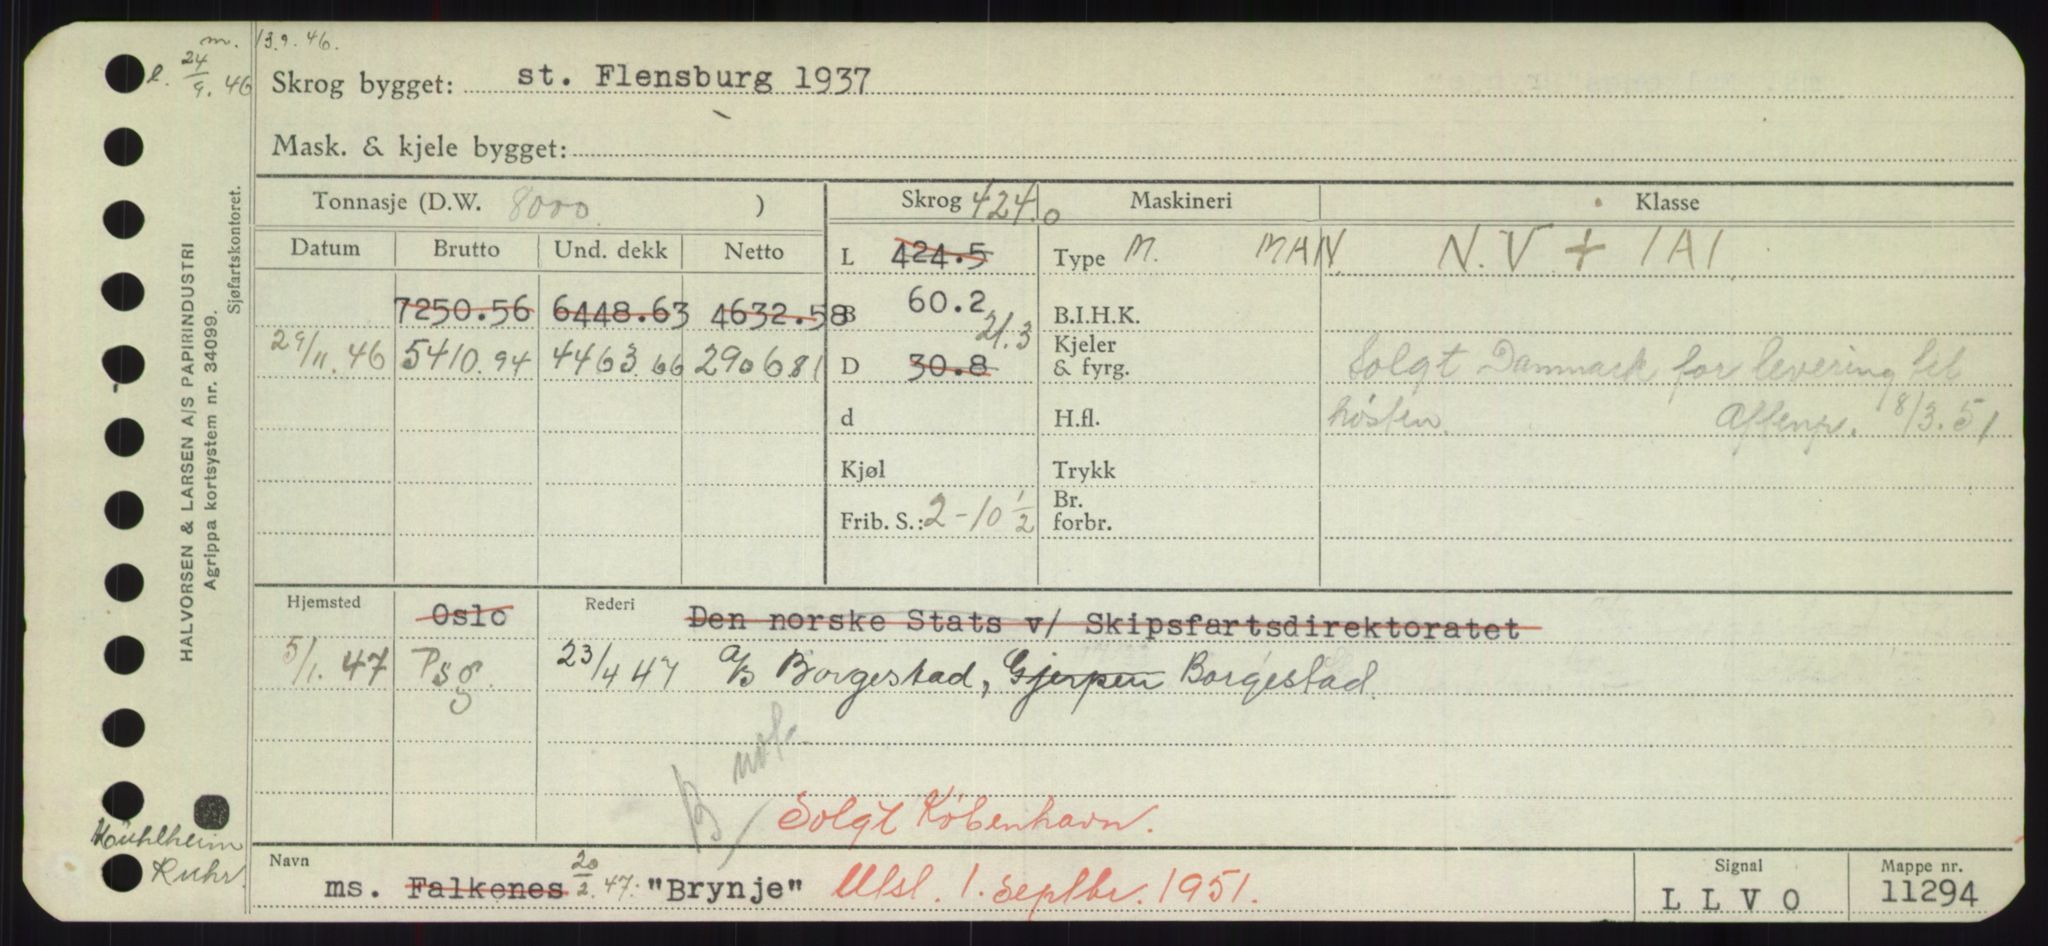 m. 13.9.46.
l. 24/9. 46
Skrog bygget: st. Flensburg 1937
Mask. & kjele bygget:
Tonnasje (D.W. 8000 ) Skrog 424.0 Maskineri Klasse
Datum Brutto Und. dekk Netto L 424.5 Type M. MAN. N.V + 1A1.
7250.56 6448.63 4632.58 B 60.2 B.I.H.K.
29/11.46 5410.94 4463.66 2906.81 D 30.8 21.3 Kjeler & fyrg. Solgt Danmark for levering til
d H.fl. høsten. Aftenp. 8/3.51
Kjøl Trykk
Frib. S.: 2-10 1/2 Br. forbr.
Hjemsted Oslo Rederi Den norske Stats v/ Skipsfartsdirektoratet
5/1.47 Psg. 23/4 47 A/S Borgestad, Gjerpen Borgestad.
B
Solgt København.
Navn ms. Falkenes 20/2.47. "Brynje" Utsl. 1. septbr. 1951. Signal L L V O Mappe nr. 11294
HALVORSEN & LARSEN A/S PAPIRINDUSTRI
Agrippa kortsystem nr. 34099.
Sjøfartskontoret.
Ruhr.